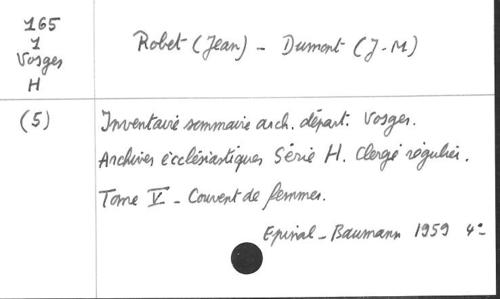 165
1
Vosges
H
Robet (Jean) - Dumont (J-M)
(5)
Inventaire sommaire arch. départ. Vosges.
Archives ècclésiastiques Série H. Clergé régulier.
Tome V - Couvent de femmes.
Epinal - Baumann 1959 4º